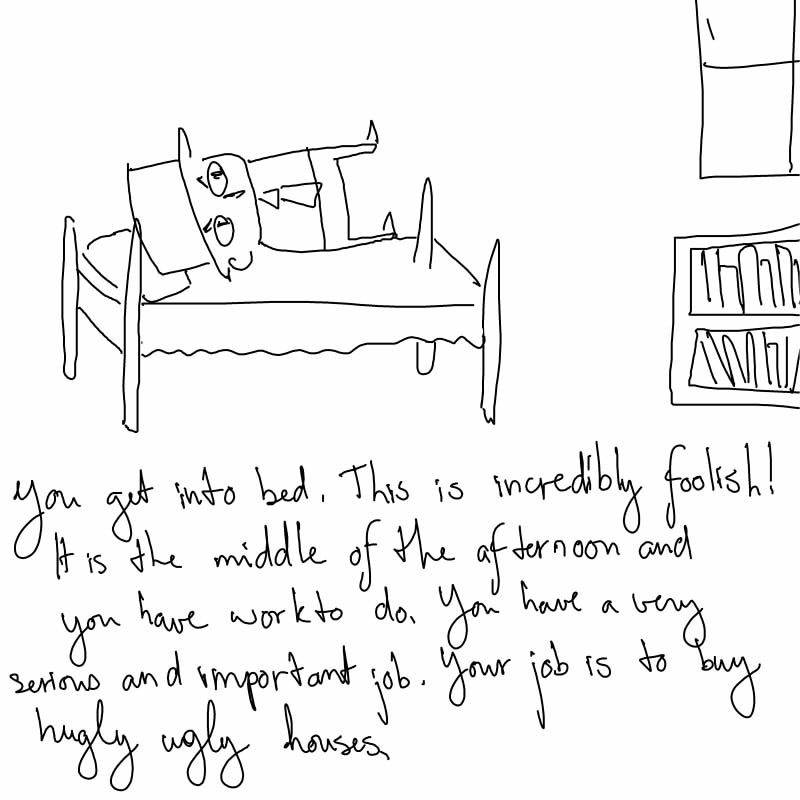 You get into bed. This is incredibly foolish!
It is the middle of the afternoon and
you have work to do. You have a very
serious and important job. Your job is to buy
hugly ugly houses.